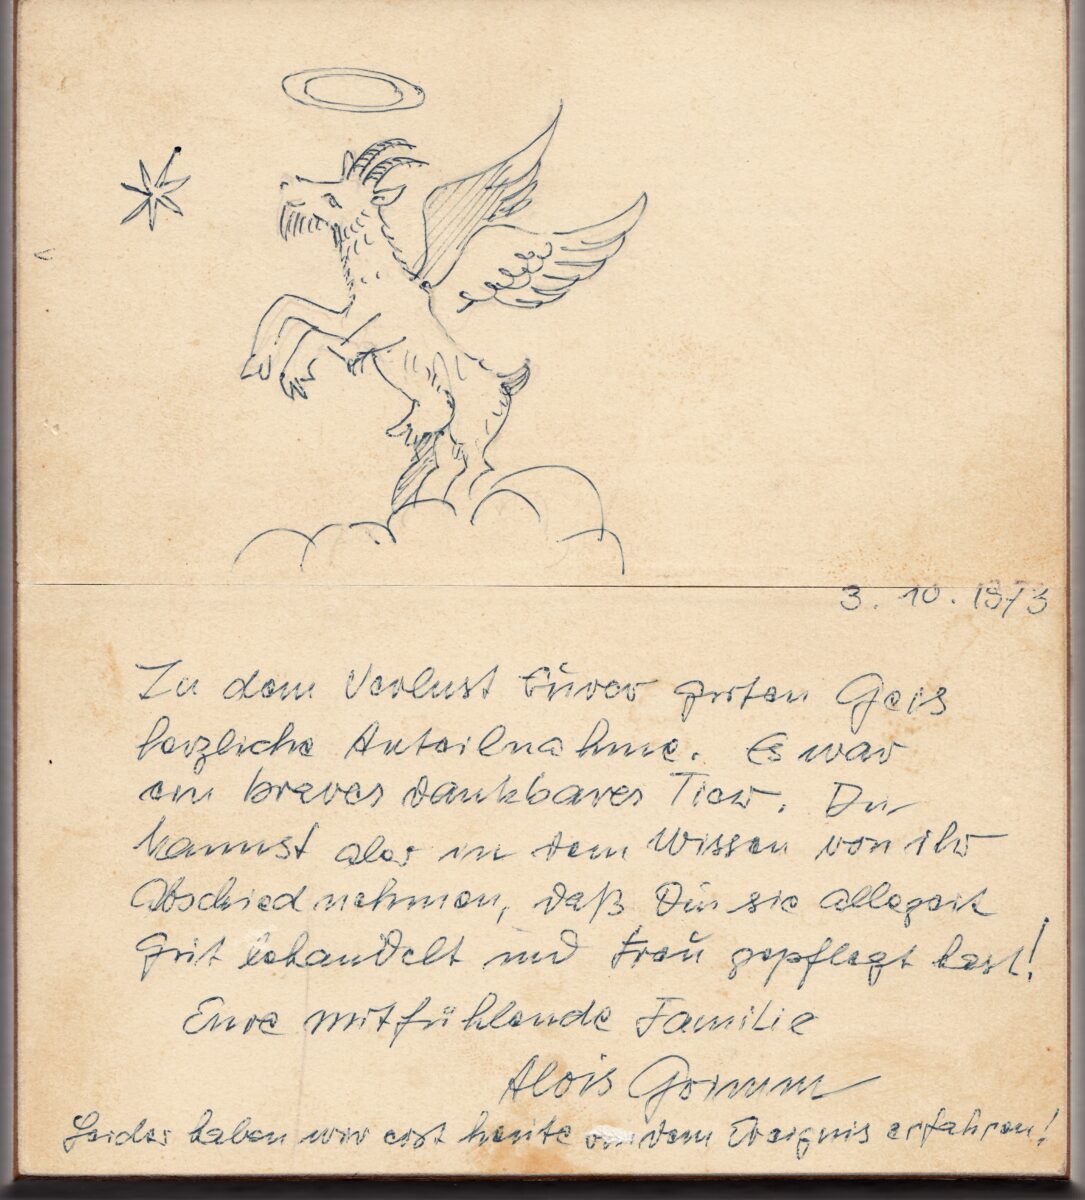 3. 10. 1973
Zu dem Verlust Eurer guten Geis
herzliche Anteilnahme. Es war
ein braves dankbares Tier. Du
kannst aber in dem Wissen von ihr
Abschied nehmen, daß Du sie allezeit
gut behandelt und treu gepflegt hast!
Eure mitfühlende Familie
Alois Grimm
Leider haben wir erst heute von dem Ereignis erfahren!